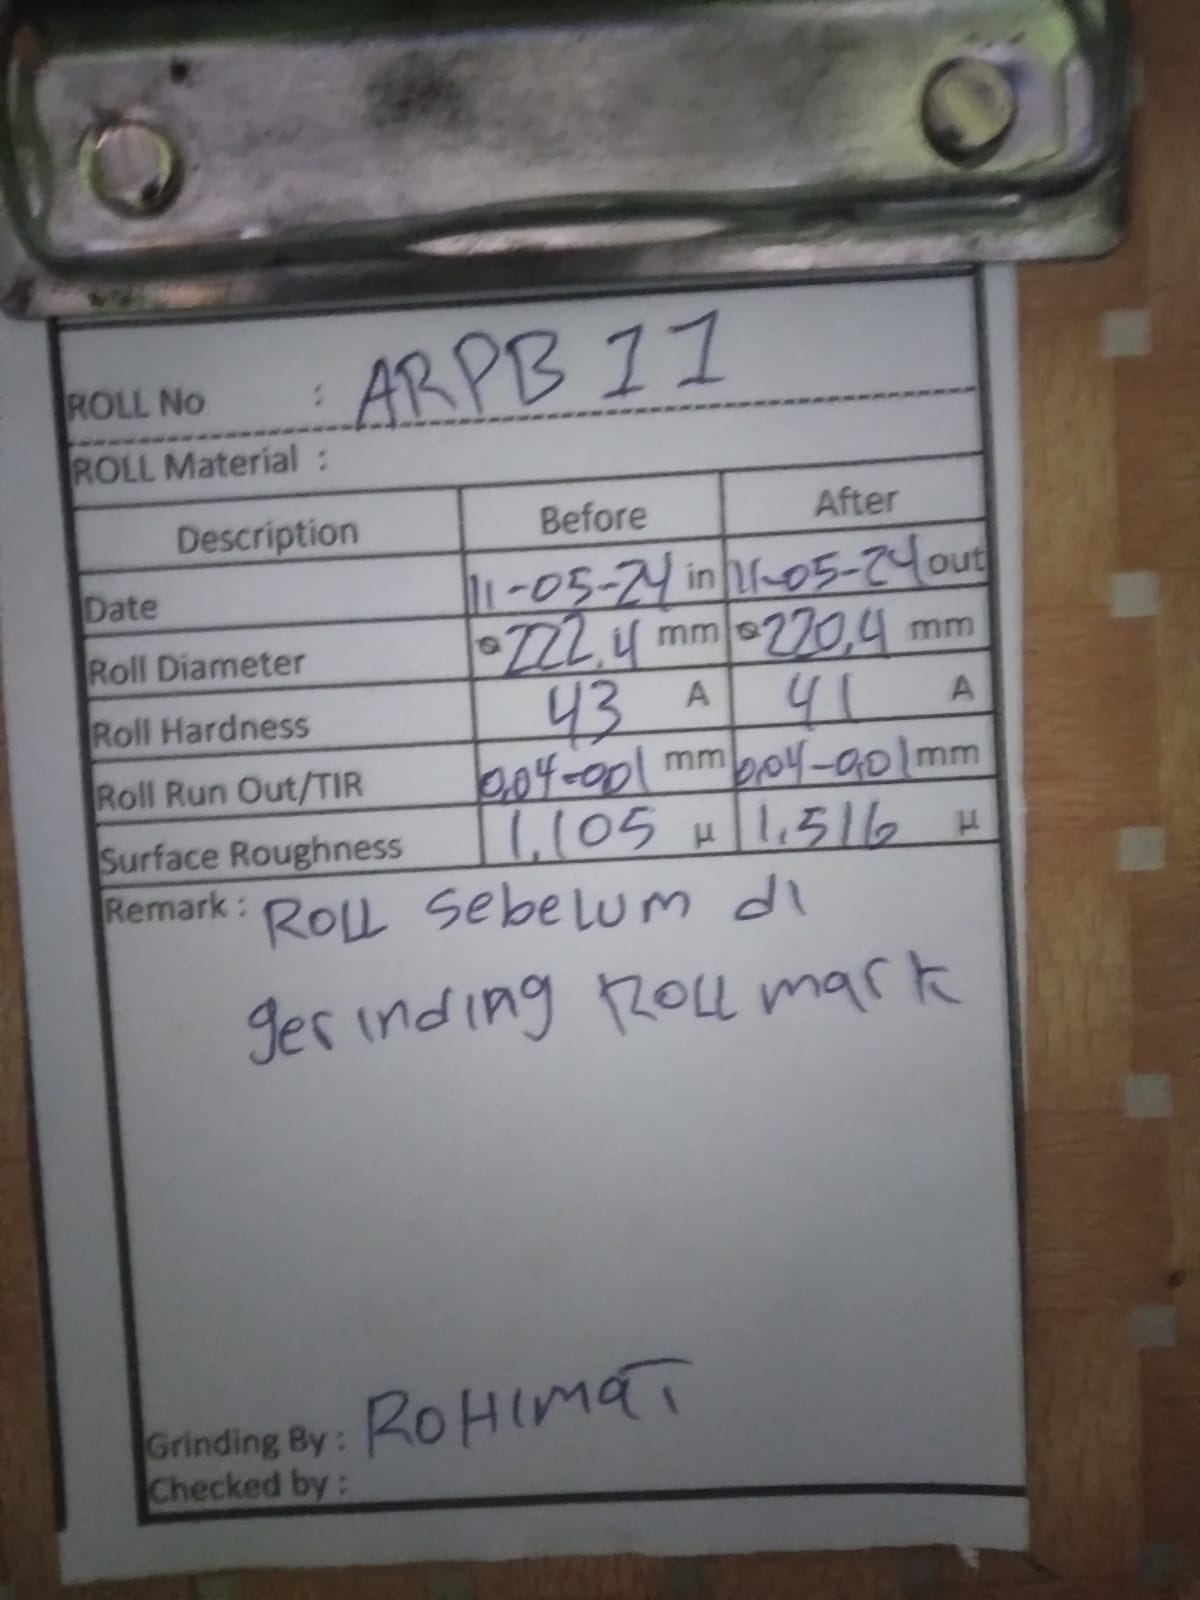 ROLL No : ARPB 11
ROLL Material :
Description Before After
Date 11-05-24 in 11-05-24 out
Roll Diameter ⌀222.4 mm ⌀220,4 mm
Roll Hardness 43 A 41 A
Roll Run Out/TIR 0,04-001 mm 0,04-0,01 mm
Surface Roughness 1.105 µ 1.516 µ
Remark : ROLL sebelum di
gerinding ROLL mark
Grinding By : ROHIMAT
Checked by :